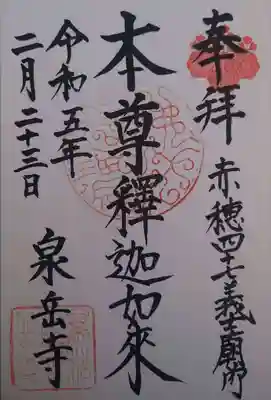 奉拝
赤穂四十七義士廟所
本尊釋迦如来
令和五年
二月二十三日
泉岳寺